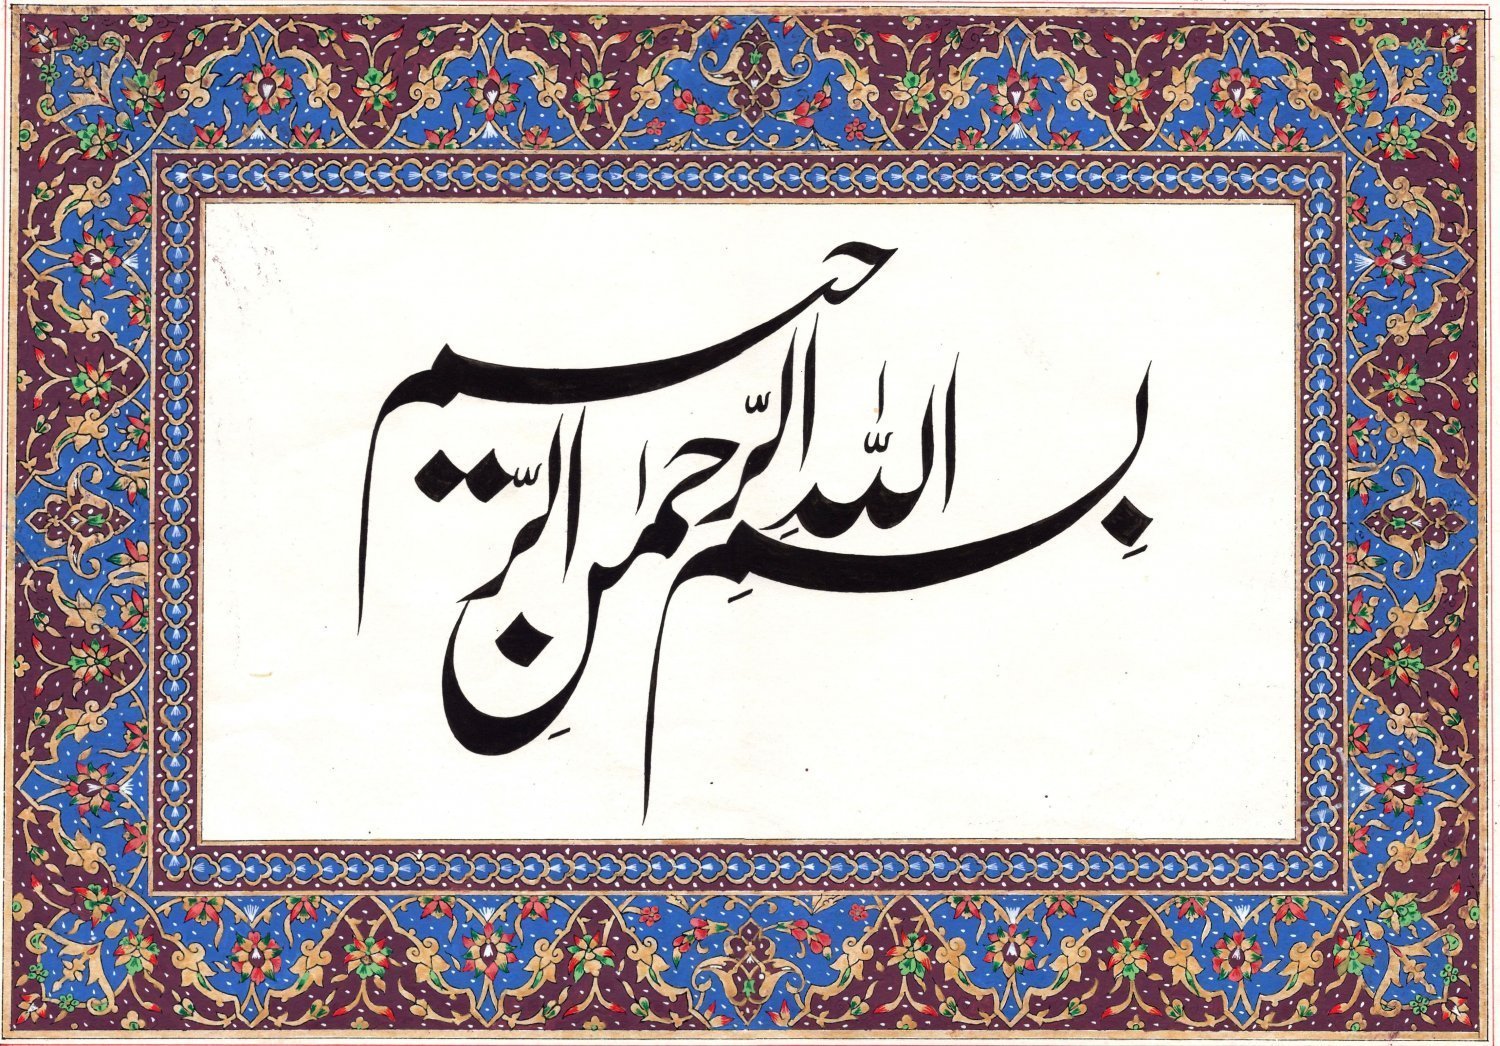 بِسمِ اللّٰهِ الرّحمٰنِ الرّحیم